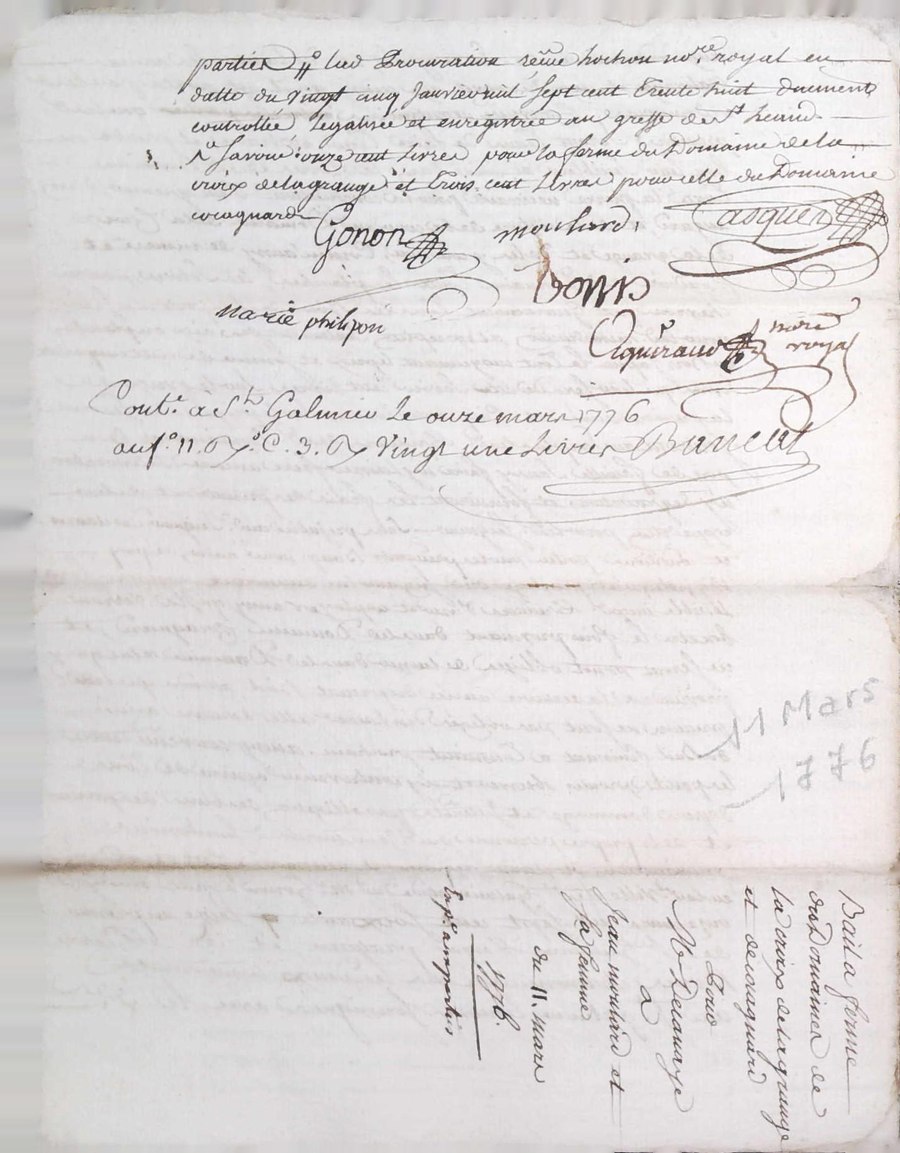 parties //° lad Procuration reçue hochon no.re royal en
datte du vingt cinq Janvier mil sept cent Trente huit duement
controllée, Legalisée et enregistrée au greffe de St
Sçavoir onze cent Livres pour la ferme du Domaine de la
croix delagrange et Trois cent Livres pour celle du Domaine
cocagnard
Gonon moulard
marie philipon
nore royal
Conte. à St. Galmier Le onze mars 1776
au f°. 11. C. 3. Vingt une Livres
11 Mars
1776
Bail a ferme
des Domaines de
la croix delagrange
et de cocagnard
Pour
Mr
à
Jean moulard et
sa femme
du 11. mars
1776.